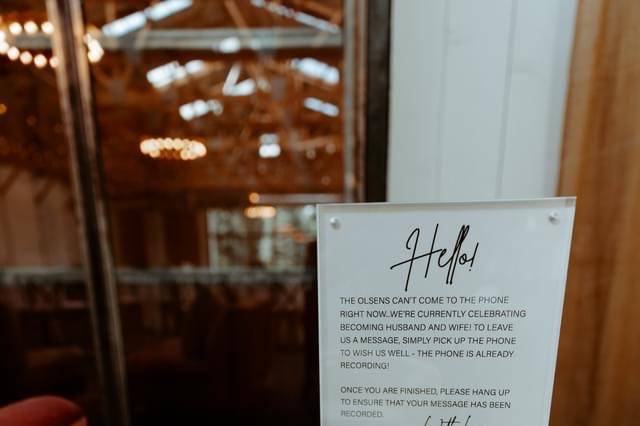 Hello!
THE OLSENS CAN'T COME TO THE PHONE
RIGHT NOW..WE'RE CURRENTLY CELEBRATING
BECOMING HUSBAND AND WIFE! TO LEAVE
US A MESSAGE, SIMPLY PICK UP THE PHONE
TO WISH US WELL - THE PHONE IS ALREADY
RECORDING!
ONCE YOU ARE FINISHED, PLEASE HANG UP
TO ENSURE THAT YOUR MESSAGE HAS BEEN
RECORDED.